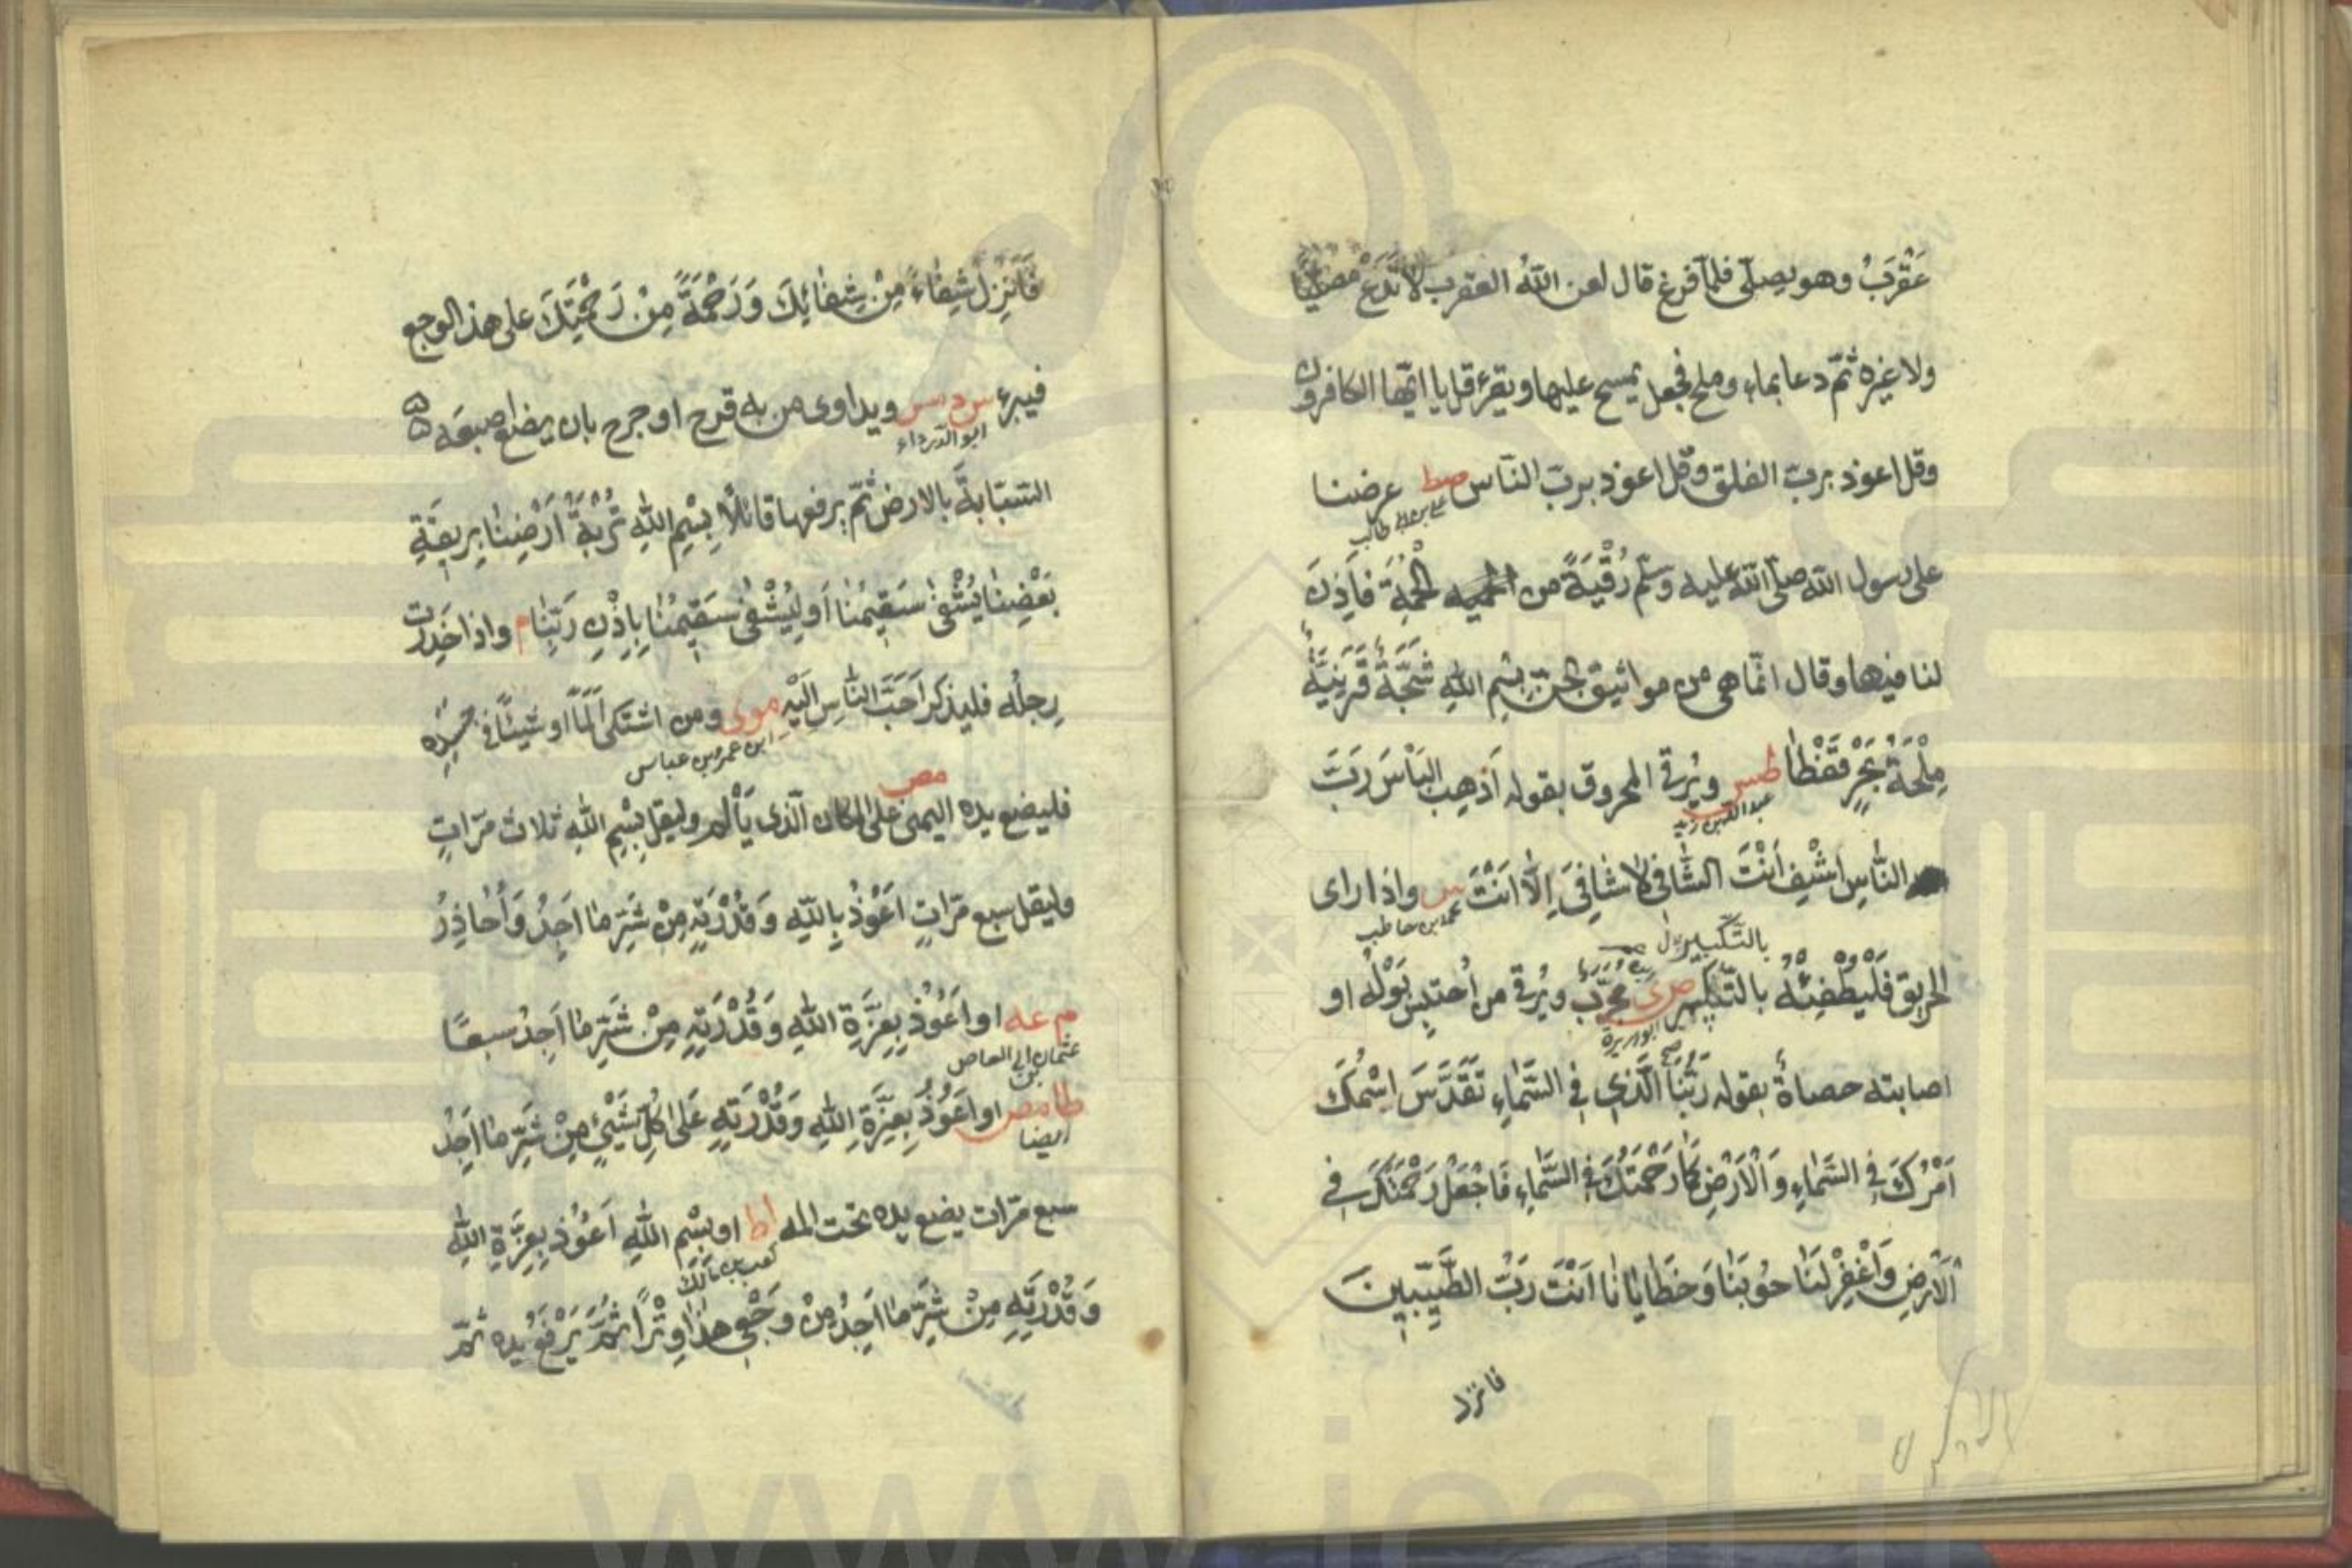 عَقْرَبٌ وهو يصلّي فلمّا فرغ قال لعن اللّٰه العقرب لا تَدَعُ مُصَلِّيًا
ولا غيره ثمّ دعا بماء وملح فجعل يمسح عليها ويقرء قل يا ايّها الكافرون
وقل اعوذ بربّ الفلق وقل اعوذ بربّ النّاس صط عرضنا
علي بن ابي طالب
على رسول اللّٰه صلّى اللّٰه عليه وسلّم رُقْيَةً من الحُمَة فَاَذِنَ
لنا فيها وقال انّما هي من مواثيق الجنّ بِسْمِ اللّٰهِ شَجَّةٌ قَرَنِيَّةٌ
مِلْحَةُ بَحْرٍ قَفْطَا طس ويُرقى المحروق بقوله اَذْهِبِ الْبَاْسَ رَبَّ
عبد اللّٰه بن زيد
النَّاسِ اِشْفِ اَنْتَ الشَّافِي لَا شَافِيَ اِلَّا اَنْتَ س واذا راى
محمد بن حاطب
بالتكبير
الحريق فَلْيُطْفِئْهُ بالتّكبير ص ى مُجَرَّب ويُرقى من اُحتبِس بَوْلُه او
ابو هريرة
اصابته حصاةٌ بقوله رَبُّنَا الَّذِي فِي السَّمَاءِ تَقَدَّسَ اسْمُكَ
اَمْرُكَ فِي السَّمَاءِ وَالْاَرْضِ كَمَا رَحْمَتُكَ فِي السَّمَاءِ فَاجْعَلْ رَحْمَتَكَ فِي
الْاَرْضِ وَاغْفِرْ لَنَا حُوبَنَا وَخَطَايَانَا اَنْتَ رَبُّ الطَّيِّبِينَ
فانزل
فَاَنْزِلْ شِفَاءً مِنْ شِفَائِكَ وَرَحْمَةً مِنْ رَحْمَتِكَ على هذا الوجع
فيبرء س د مس ويداوى من به قرح او جرح بان يضع اصبعَه
ابو الدرداء
السّبّابةَ بالارض ثمّ يرفعها قائلًا بِسْمِ اللّٰهِ تُرْبَةُ اَرْضِنَا بِرِيقَةِ
بَعْضِنَا يُشْفَى سَقِيمُنَا اَو لِيُشْفَى سَقِيمُنَا بِاِذْنِ رَبِّنَا م واذا خَدِرَت
رِجلُه فليذكر اَحَبَّ النَّاسِ اِلَيْهِ موى ومن اشتكى اَلَمًا او شيئًا في جسده
ابن عمر وبن عباس
مص
فليضع يده اليمنى على المكان الّذى يَأْلَم وليقل بِسْمِ اللّٰهِ ثلاث مرّاتٍ
وليقل سبع مرّاتٍ اَعُوْذُ بِاللّٰهِ وَقُدْرَتِهِ مِنْ شَرِّ مَا اَجِدُ وَاُحَاذِرُ
م عه او اَعُوْذُ بِعِزَّةِ اللّٰهِ وَقُدْرَتِهِ مِنْ شَرِّ مَا اَجِدُ سبعًا
عثمان بن ابي العاص
طا مص او اَعُوْذُ بِعِزَّةِ اللّٰهِ وَقُدْرَتِهِ عَلَى كُلِّ شَيْئٍ مِنْ شَرِّ مَا اَجِدُ
ايضا
سبع مرّات يضع يده تحت المه اط او بِسْمِ اللّٰهِ اَعُوْذُ بِعِزَّةِ اللّٰهِ
كعب بن مالك
وَقُدْرَتِهِ مِنْ شَرِّ مَا اَجِدُ مِنْ وَجَعِي هذا وِتْرًا ثُمَّ يَرْفَعُ يده ثمّ